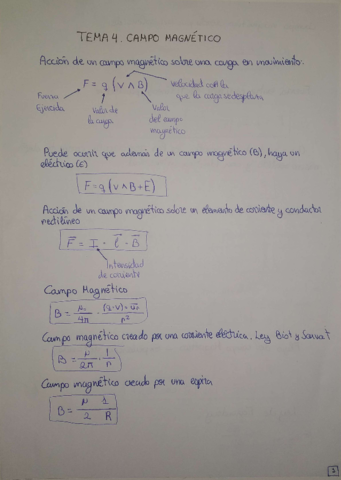 TEMA 4. CAMPO MAGNÉTICO
Acción de un campo magnético sobre una carga en movimiento.
F = q (v ∧ B)
velocidad con la
que la carga se desplaza
Fuerza
Ejercida
Valor de
la carga
Valor
del campo
magnético
Puede ocurrir que además de un campo magnético (B), haya un
eléctrico (E)
F = q (v ∧ B + E)
Acción de un campo magnético sobre un elemento de corriente y conductor
rectilíneo
F⃗ = I · l⃗ · B⃗
Intensidad
de corriente
Campo Magnético
B = μ/4π · (q·v) × u⃗r / r²
Campo magnético creado por una corriente eléctrica. Ley Biot y Savart
B = μ/2π · 1/r
Campo magnético creado por una espira
B = μ/2 · 1/R